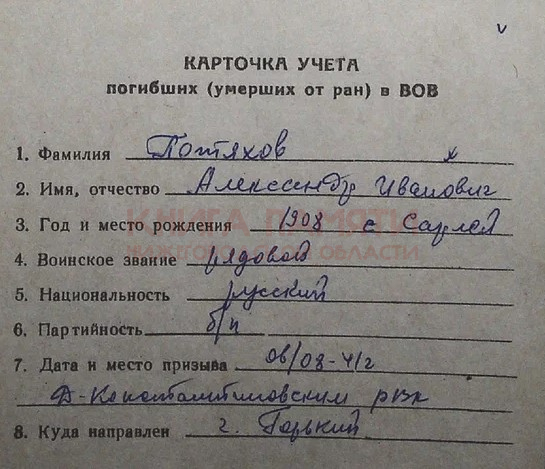 КАРТОЧКА УЧЕТА
погибших (умерших от ран) в ВОВ
1. Фамилия Потяхов х
2. Имя, отчество Александр Иванович
3. Год и место рождения 1908 с Сарлей
КНИГА ПАМЯТИ
4. Воинское звание рядовой
5. Национальность русский
6. Партийность б/п
7. Дата и место призыва 06/08-41г
Д-Константиновским рвк
8. Куда направлен г. Горький